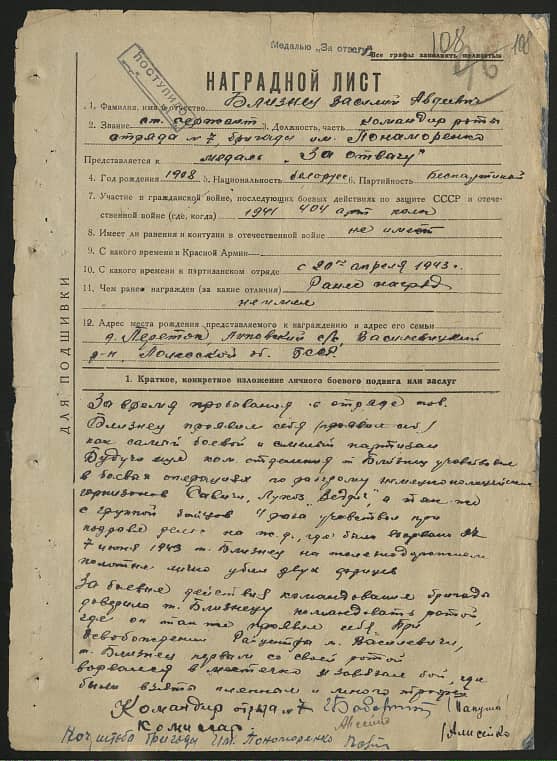 Медалью „За отвагу"
108
108
Все графы заполнять полностью
ПОСТУПИЛО
НАГРАДНОЙ ЛИСТ
1. Фамилия, имя и отчество Близнец Василий Авдеевич
2. Звание ст. сержант 3. Должность, часть командир роты
отряда №7, бригады им. Пономаренко
Представляется к медаль „За отвагу"
4. Год рождения 1908 5. Национальность белорус 6. Партийность Беспартийный
7. Участие в гражданской войне, последующих боевых действиях по защите СССР и отече-
ственной войне (где, когда) 1941 404 арт полк
8. Имеет ли ранения и контузии в отечественной войне не имеет
9. С какого времени в Красной Армии
10. С какого времени в партизанском отряде с 20го апреля 1943 г.
11. Чем ранее награжден (за какие отличия) Ранее наград
не имел
12. Адрес места рождения представляемого к награждению и адрес его семьи
д. Переток с/с, Василевицкий
р-н, Полесской об. БССР.
ДЛЯ ПОДШИВКИ
1. Краткое, конкретное изложение личного боевого подвига или заслуг
За время пребывания в отряде тов.
Близнец проявил себя (проявил себя)
как самый боевой и смелый партизан
Будучи еще ком отделения т Близнец участвовал
в боевых операциях по разгрому немецко полицейских
гарнизонов Савичи, а так же
с группой бойцов 4 раза участвовал при
подрыве на ж.д., где было взорвано
7 июня 1943 т. Близнец на железнодорожном
полотне лично убил двух фрицев
За боевые действия командование бригады
доверило т. Близнецу командовать ротой,
где он так же проявил себя При
освобождении Райцентра м. Василевичи,
т. Близнец первым со своей ротой
ворвался в местечко и завязал бой, где
были взяты пленные и много трофей
Командир отряда №7
Комиссар
Нач штаба бригады Им. Пономаренко